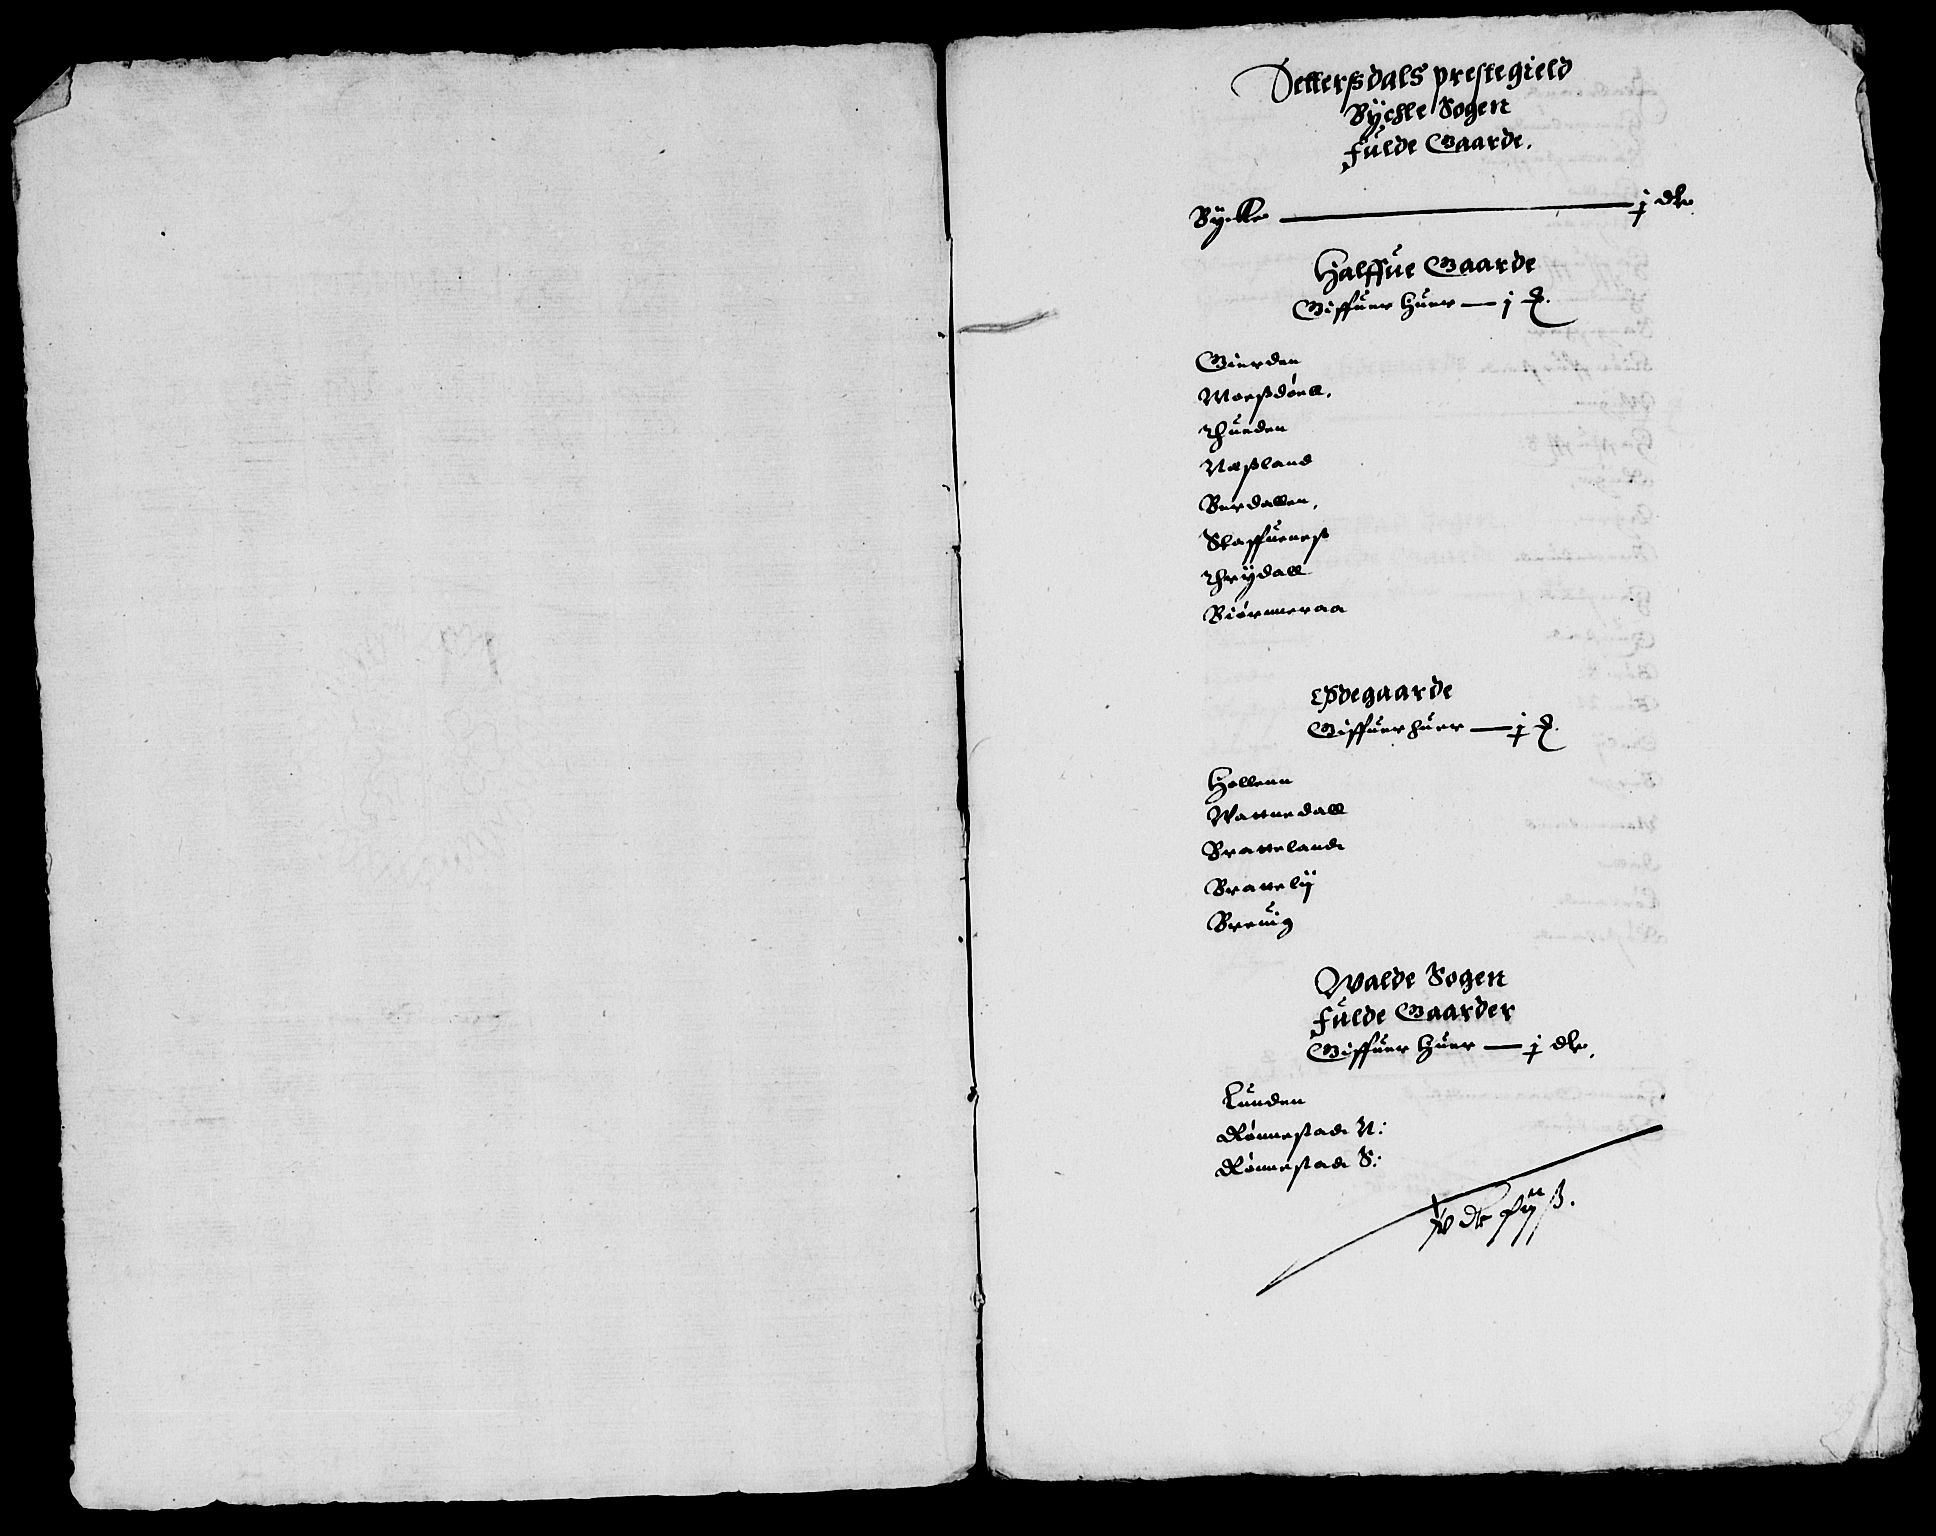 Settersdals prestegield
Bÿchle Sogen
fulde Gaarde.
Bÿckle — j dlr
Halffue Gaarde
Giffuer huer — j
Gierden
Morßdóell.
Thueden
Næßland
Berdallen,
Staffuenest
Thrÿdall
Biórneraa
Ødegaarde
Giffuer huer — j
Hollenn
Wattnedall
Brattelandt
Brattelÿ
Breuig
Walde Sogen
fulde Gaarder
Giffuer huer — j dlr.
Lunden
Rónnestadt N:
Rónnestadt S: